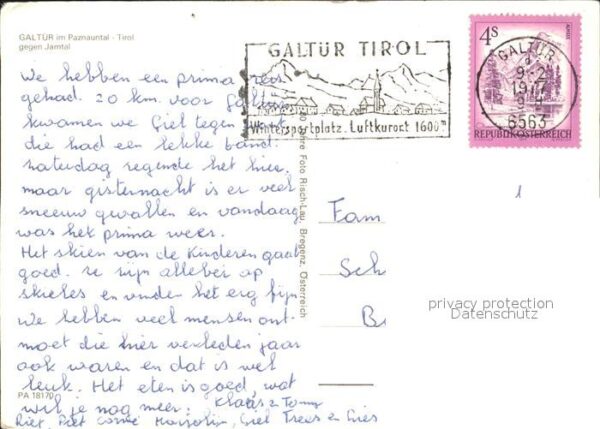 GALTÜR im Paznauntal - Tirol
gegen Jamtal
We hebben een prima reis
gehad. 20 km. voor Galtür
kwamen we Giel tegen
die had een lekke band.
zaterdag regende het hier
maar gisternacht is er veel
sneeuw gevallen en vandaag
was het prima weer.
Het skien van de Kinderen gaat
goed. ze zijn allebei op
skieles en vinden het erg fijn
We hebben veel mensen ont-
moet die hier verleden jaar
ook waren en dat is wel
leuk. Het eten is goed, wat
wil je nog meer. Klaas en Tonny
Riet, Piet Corné Marjolin, Giel Trees en Cies
PA 18170
GALTÜR TIROL
Wintersportplatz. Luftkurort 1600m
Foto Risch-Lau, Bregenz, Österreich
4S
AFRITZ
REPUBLIK ÖSTERREICH
GALTÜR
6563
1
Fam
Sch
B
privacy protection
Datenschutz